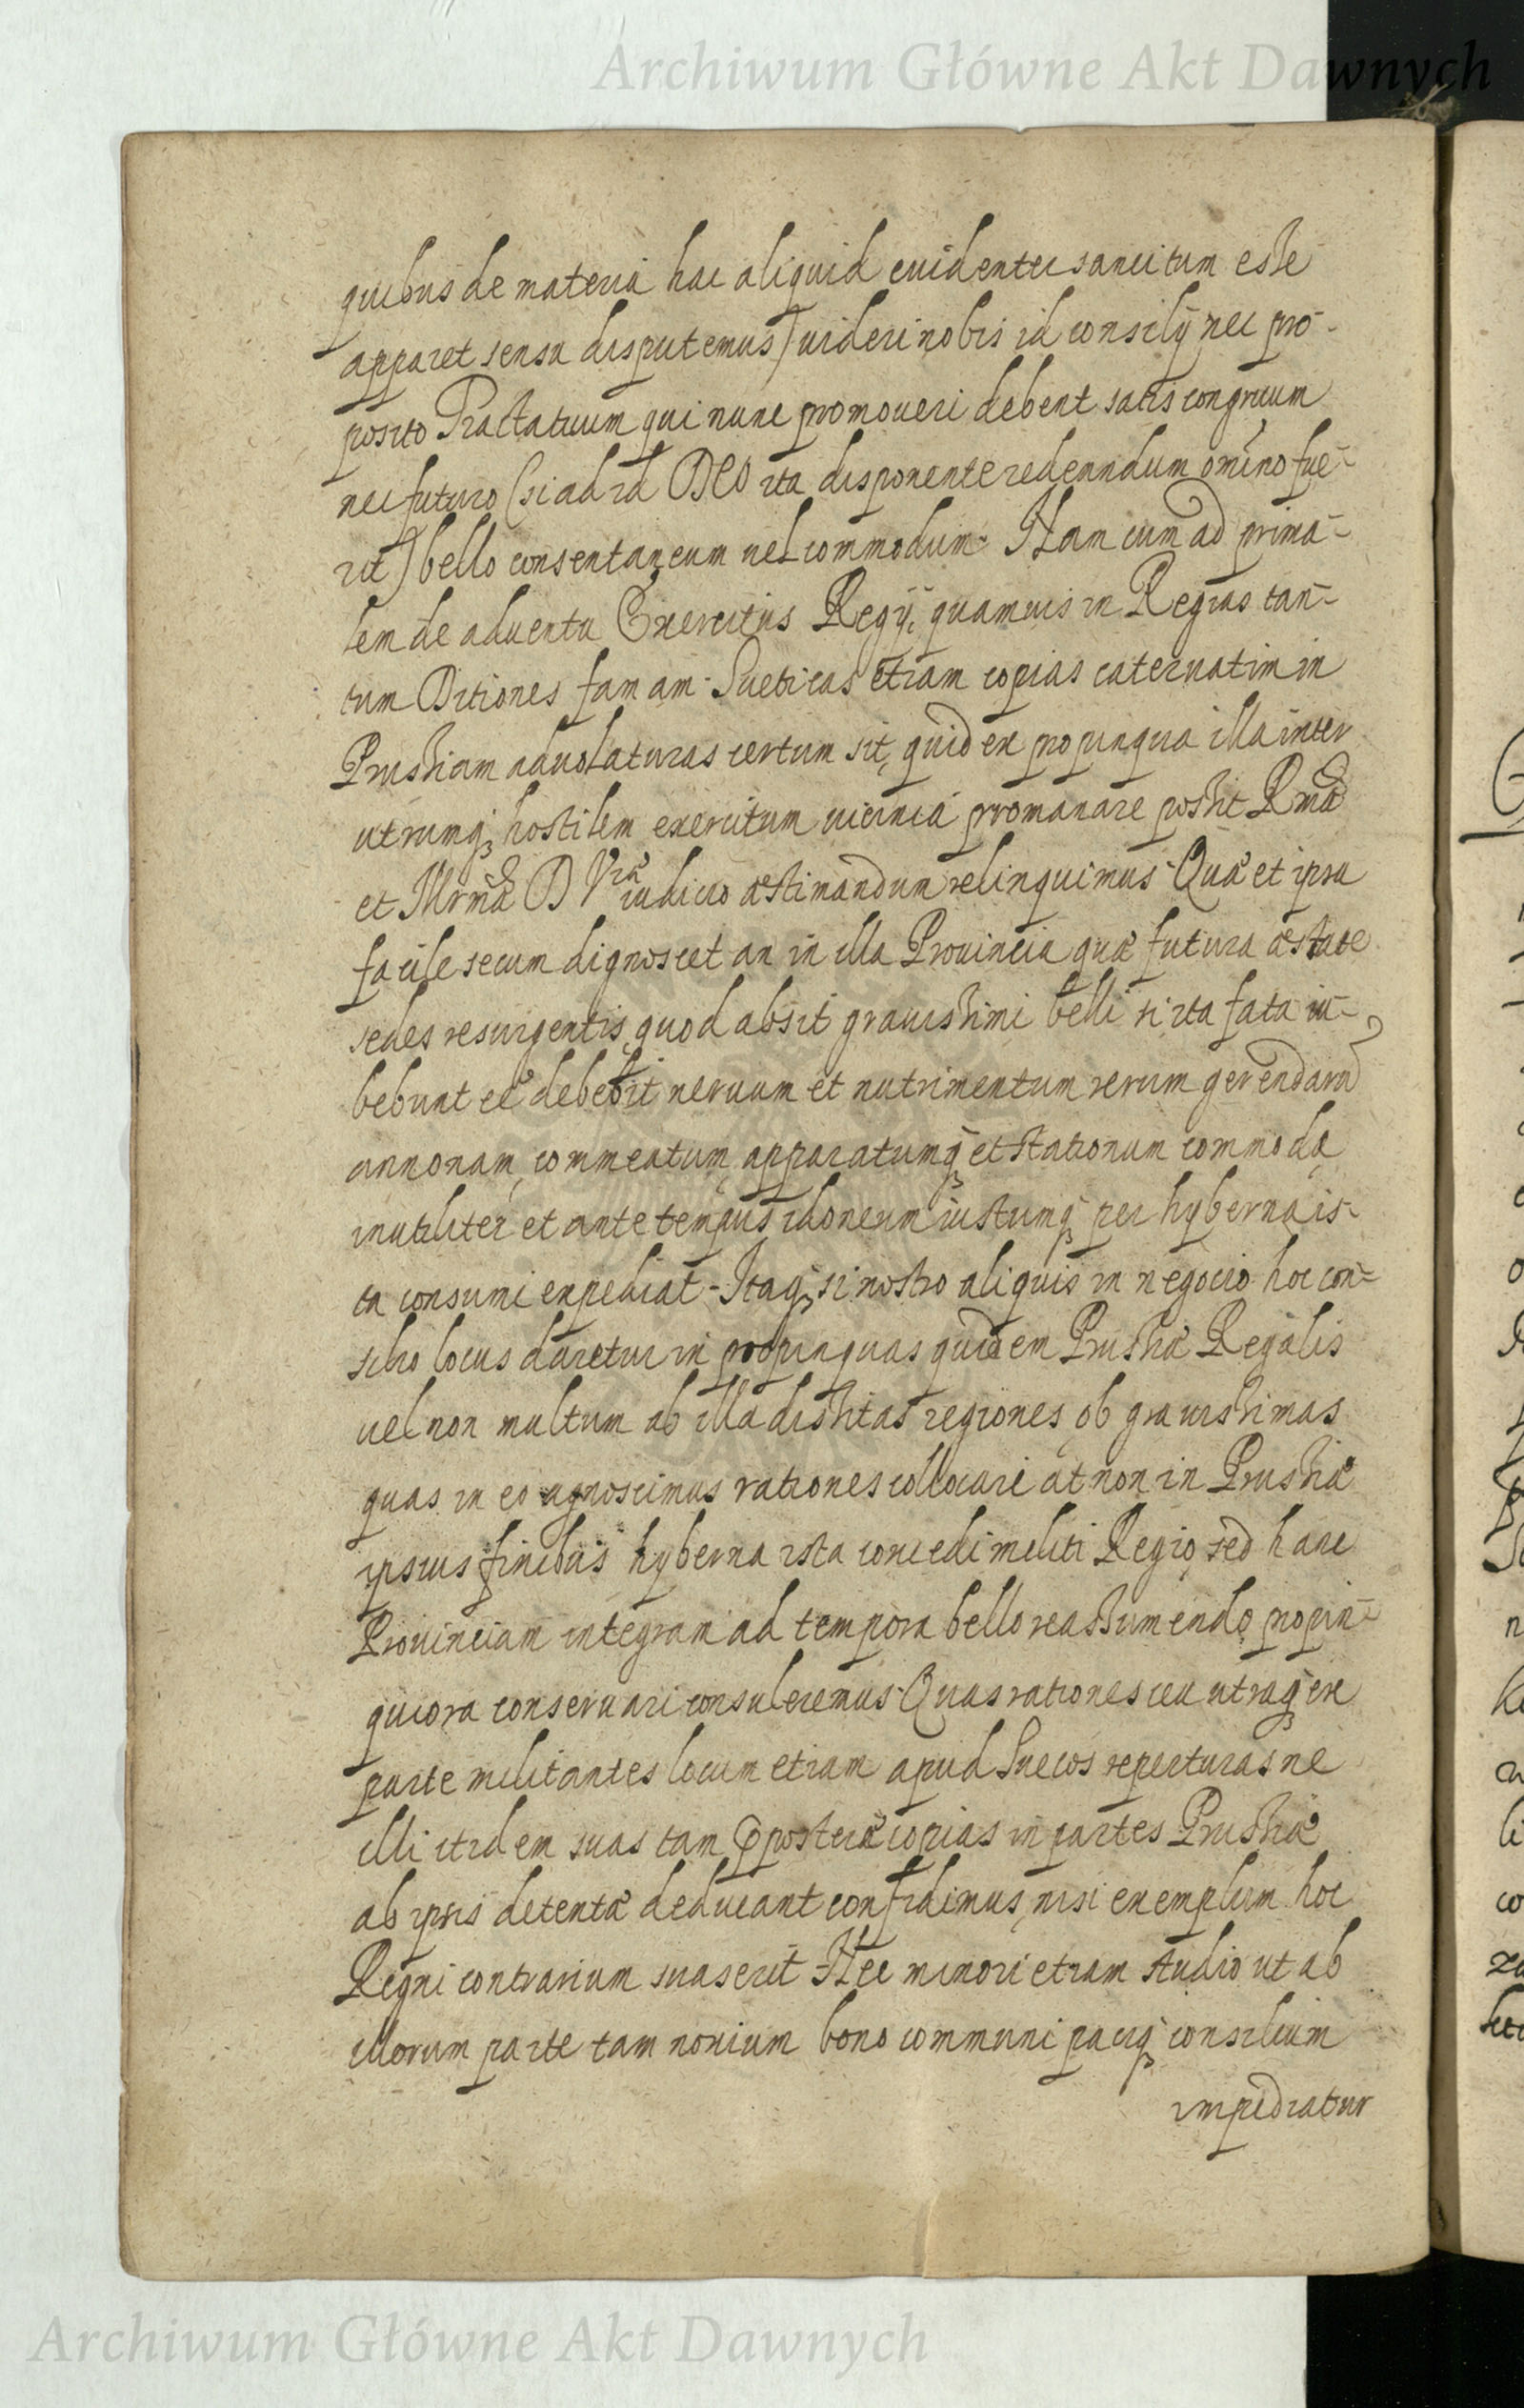 Archiwum Główne Akt Dawnych
quibus de materia hac aliquid euidenter sancitum esse
apparet sensu disputemus) uideri nobis id consilij nec pro-
posito Tractatuum qui nunc promoueri debent satis congruum
nec futuro (si ad id DEO ita disponente redeundum omĩno fue-
rit) bello consentaneum uel commodum. Nam cum ad prima-
lem de aduentu Exercitus Regij, quamuis in Regias tan-
tum Ditiones famam Sueticas etiam copias cateruatim in
Prussiam aduolaturas certum sit, quid ex propinqua illa inter
utrumq; hostilem exercitum uicinia promanare possit Rmã
et Illrmã D Vrã iudicio æstimandum relinquimus. Quæ et ipsa
facile secum dignoscet an in illa Prouincia quæ futura æstate
sedes resurgentis, quod absit grauissimi belli si ita fata iu-
bebunt eẽ debebit neruum et nutrimentum rerum gerendarũ
annonam, commeatum, apparatumq; et stationum commoda
inutiliter et ante tempus idoneum iustumq; per hyberna is-
ta consumi expediat. Itaq; si nostro aliquis in negocio hoc con-
silio locus daretur in propinquas quidem Prussiæ Regalis
uel non multum ab illa dissitas regiones, ob grauissimas
quas in eo agnoscimus rationes collocari at non in Prussiæ
ipsius finibus hyberna ista concedi militi Regio, sed hanc
Prouinciam integram ad tempora bello reassumendo propin-
quiora conseruari consuleremus. Quas rationes ceu utraq; ex
parte militantes locum etiam apud Suecos reperturas ne
illi itidem suas tam posteræ copias in partes Prussiæ
ab ipsis detentæ deducant confidimus, nisi exemplum hoc
Regni contrarium suaserit. Nec minori etiam studio ut ab
illorum parte tam noxium bono communi pacisq; consilium
impediatur
Archiwum Główne Akt Dawnych